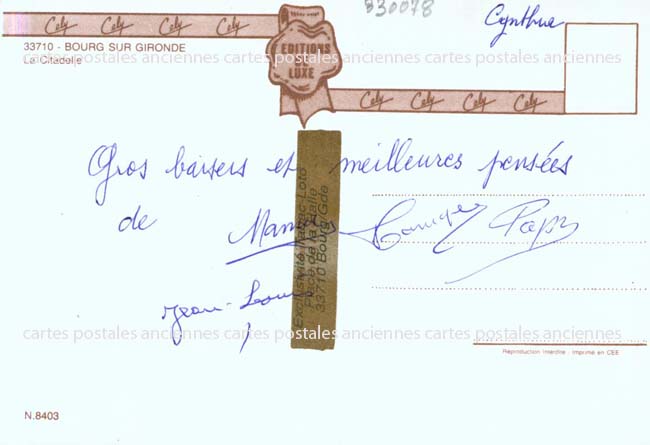 Caly Caly Caly Caly
33710 - BOURG SUR GIRONDE
La Citadelle
EDITIONS DE LUXE
330078
Cynthia
Caly Caly Caly Caly
Gros baisers et meilleures pensées
de Mamie Papy
Jean-Louis
Exclusivité Tabac-Loto
Place de la Halle
33710 Bourg/Gde
cartes postales anciennes cartes postales anciennes cartes postales anciennes
cartes postales anciennes cartes postales anciennes cartes postales anciennes
Reproduction Interdite - Imprimé en CEE
N.8403